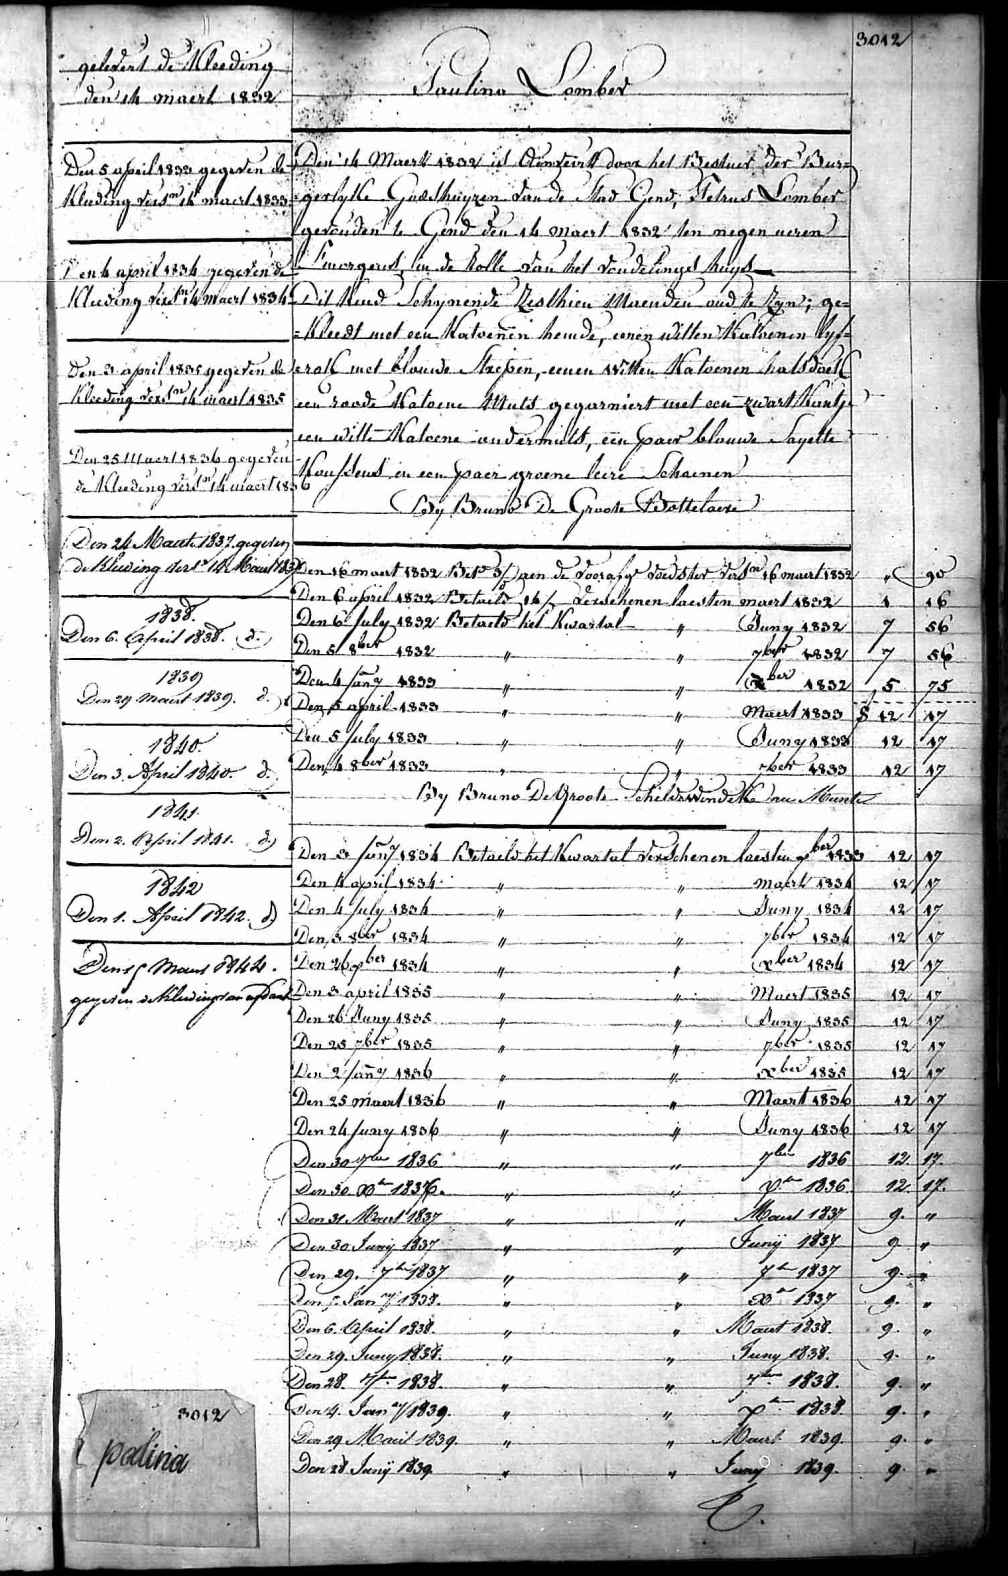 3012
gelevert de Kleeding
den 14 maert 1832
Den 5 april 1833 gegeven de
Kleeding vers.n 14 maert 1833
Den 4 april 1834 gegeven de
Kleeding vers.n 14 maert 1834
Den 3 april 1835 gegeven de
Kleeding vers.n 14 maert 1835
Den 25 Maert 1836 gegeven
de Kleeding vers.n 14 maert 1836
Den 24 Maert 1837 gegeven
de Kleeding vers.n 14 Maert 1837
1838.
Den 6. April 1838. d.
1839
Den 29 Maert 1839. d.
1840.
Den 3. April 1840. d.
1841.
Den 2. April 1841. d.
1842
Den 1. April 1842. d)
Den 15 Maert 1844.
gegeven de Kleeding van
3012
paulina
Paulina Lomber
Den 14 Maert 1832 is door het Bestuer der Bur=
=gerlyke Godshuyzen van de Stad Gend, Petrus Lomber
gevonden te Gend den 14 maert 1832 ten negen ueren
's morgens, in de Rolle van het vondelings huys
Dit Kind Schynende Zesthien Maenden oud te Zyn; ge=
=Kleedt met een Katoenen hemde, eenen witten Katoenen lyf=
=rok met blauwe Strepen, eenen witten Katoenen halsdoek
een roode Katoene Muts gegarniert met een zwart Kantje
een witte Katoene ondermuts, een paer blauwe Sayette
Koussens en een paer groene leire Schoenen
By Bruno De Groote Bottelaere
Den 16 maert 1832 Bet.d 3/ aen de voorafg.e voedster vers.n 16 maert 1832 " 90
Den 6 april 1832 Betaeld 14/ verschenen laesten maert 1832 1 16
Den 6 July 1832 Betaeld het Kwartael " Juny 1832 7 56
Den 5 8ber 1832 " " 7ber 1832 7 56
Den 4 Jany 1833 " " xber 1832 5 75
Den 5 april 1833 " " Maert 1833 $ 12 17
Den 5 July 1833 " " Juny 1833 12 17
Den 4 8ber 1833 " " 7ber 1833 12 17
By Bruno De Groote Schelde Windeke nu Munte
Den 3 Jany 1834 Betaeld het Kwartal verschenen laesten xber 1833 12 17
Den 4 april 1834 " " maert 1834 12 17
Den 4 July 1834 " " Juny 1834 12 17
Den 3 8ber 1834 " " 7ber 1834 12 17
Den 26 xber 1834 " " xber 1834 12 17
Den 3 april 1835 " " Maert 1835 12 17
Den 26 Juny 1835 " " Juny 1835 12 17
Den 25 7ber 1835 " " 7ber 1835 12 17
Den 2 Jany 1836 " " xber 1835 12 17
Den 25 maert 1836 " " Maert 1836 12 17
Den 24 Juny 1836 " " Juny 1836 12 17
Den 30 7ber 1836 " " 7ber 1836 12 17.
Den 30 Xber 1836. " " Xber 1836 12 17.
Den 31 Maert 1837 " " Maert 1837 9. "
Den 30 Junij 1837 " " Junij 1837 9 "
Den 29. 7br 1837 " " 7br 1837 9. "
Den 5. Jany 1838. " " Xbr 1837 9. "
Den 6. April 1838. " " Maert 1838. 9. "
Den 29. Juny 1838. " " Juny 1838. 9. "
Den 28. 7br 1838. " " 7br 1838. 9. "
Den 4. Jany 1839. " " Xbr 1838. 9. "
Den 29 Maert 1839. " " Maert 1839. 9. "
Den 28 Junij 1839. " " Juny 1839. 9. "